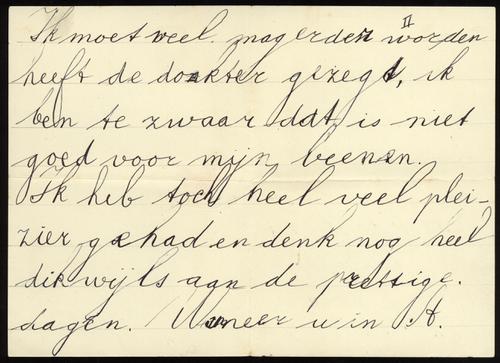 II
Ik moet veel magerder worden
heeft de dokter gezegt, ik
ben te zwaar dat is niet
goed voor mijn beenen.
Ik heb toch heel veel plei-
zier gehad en denk nog heel
dikwijls aan de prettige.
dagen. Wneer u in A.